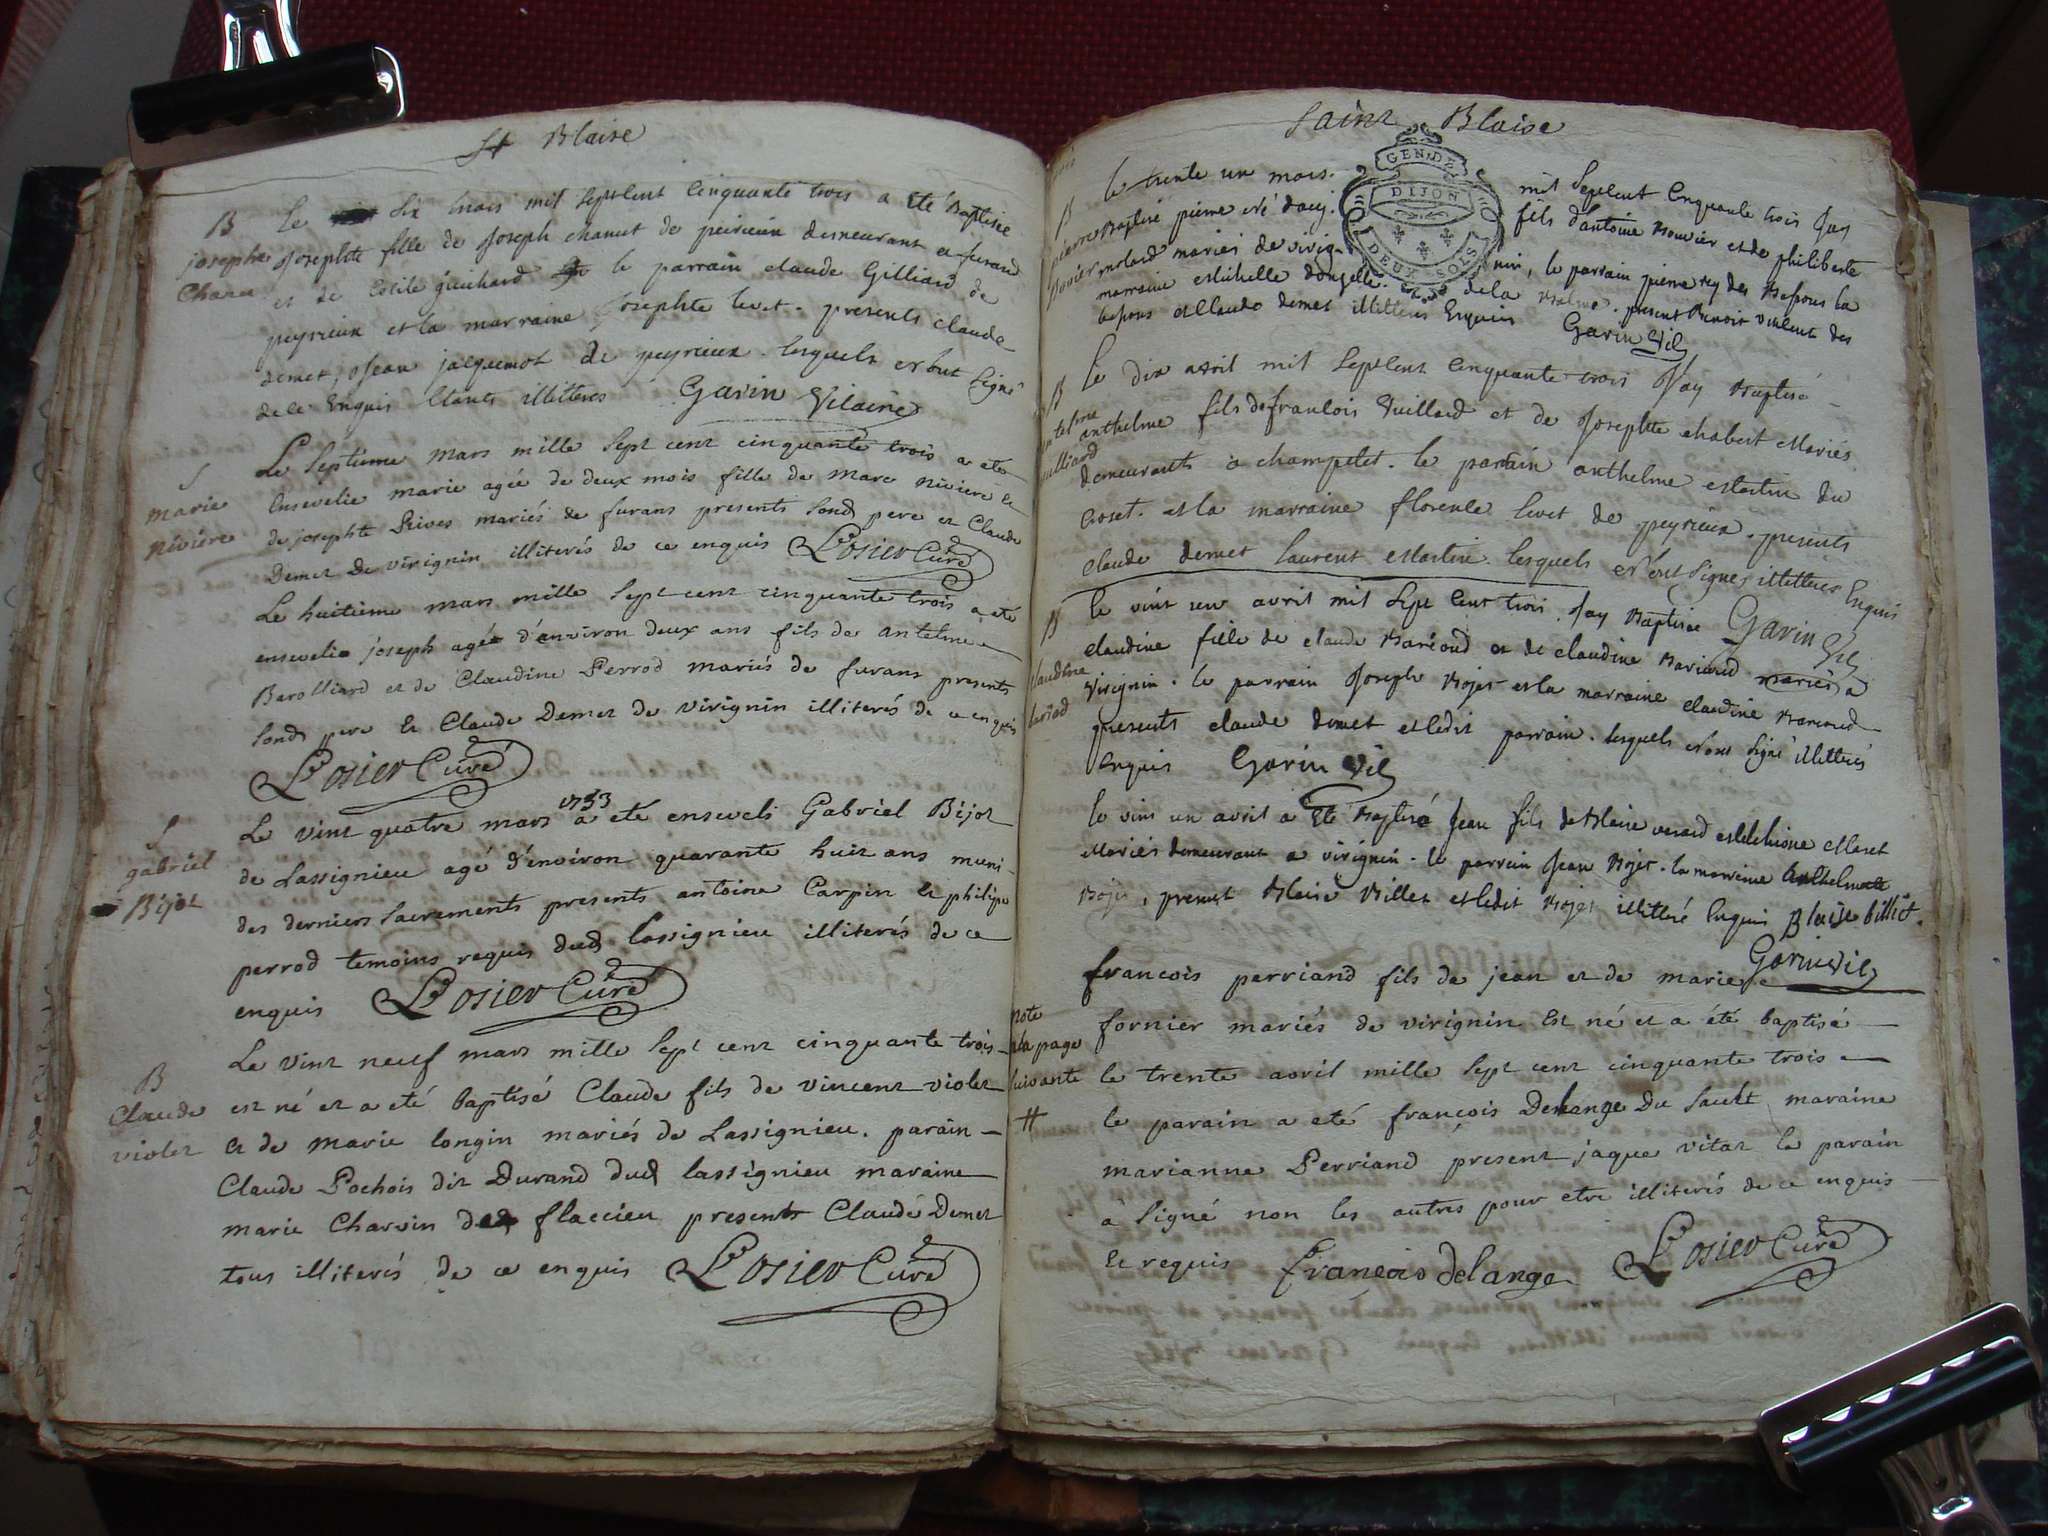 St Blaise
B Le six mars mil sept cent cinquante trois a été Baptisée
josephe Josephte fille de Joseph chanut de peirieux demeurant a furand
Chanu et de guichard le parrain claude Gilliard de
peyrieux et la marraine josephte levet. presents claude
demet, Jean jacquemot de peyrieux. lesquels n'ont signé
de ce Enquis étants illitteres Garin Vicaire
S Le septieme mars mille sept cent cinquante trois a eté
marie Ensevelie marie agée de deux mois fille de marc niviere et
niviére de josephte Rives mariés de furans presents sond pere et Claude
Demet De virignin illiterés de ce enquis Losier Curé
Le huitieme mars mille sept cent cinquante trois a eté
ensevelie joseph agée d'environ deux ans fils de antelme
Barolliard et de Claudine Perrod mariés de furans presents
sond pere Et Claude Demet de virignin illiterés de ce enquis
Losier Curé
1753
S Le vint quatre mars a eté enseveli Gabriel Bijot
gabriel de Lassignieu agé d'environ quarante huit ans muni
Bijot des derniers sacrements presents antoine Carpin et philipe
perrod temoins requis dud lassignieu illiterés de ce
enquis Losier Curé
Le vint neuf mars mille sept cent cinquante trois
B
Claude est né et a eté baptisé Claude fils de vincent violet
violet et de marie longin mariés de Lassignieu. parain
Claude Pochois dit Durand dud lassignieu maraine
marie Charvin de flaccieu presents Claude Demet
tous illiterés de ce enquis Losier Curé
Saint Blaise
GEN. DE
DIJON
DEUX SOLS
B le trente un mars mil sept cent cinquante trois Jay
pierre Baptisé pierre né d'auj. fils d'antoine Bouvier et de philiberte
Bouvier molard mariés de virignin, le parrain pierre rey des Bessons la
marraine Michelle de la Balme. present Benoit vincent des
bessons et Claude demet illitteres Enquis Garin Vic
B Le dix avril mil sept cent cinquante trois Jay Baptisé
antelme anthelme fils de francois Vuillard et de Josephte chabert Mariés
vulliard demeurants a champtel. le parrain anthelme Martin du
Croset. et la marraine florence levet de peyrieux. presents
claude demet laurent Martin. lesquels n'ont signés illitteres Enquis
Garin Vic
B le vint un avril mil sept cent trois Jay Baptisée
claudine claudine fille de claude Bariod et de claudine mariés a
bariod Virignin. le parrain Joseph Rojet et la marraine claudine
presents claude demet et ledit parrain. lesquels n'ont signé illitterés
Enquis Garin Vic
le vint un avril a Eté Baptisé Jean fils de Blaise
Mariés demeurant a virignin. le parrain Jean Rojet. la marraine Anthelmette
Rojet, present Blaise Billet et ledit Rojet illitteré Enquis Blaise billiet.
Garin Vic
francois perriand fils de jean et de marie
note fornier mariés de virignin Est né et a été baptisé
a la page
suivante le trente avril mille sept cent cinquante trois
# le parain a eté françois Delange Du Sault maraine
marianne Perriand present jaque vitat le parain
a signé non les autres pour etre illiterés de ce enquis
Et requis François delange Losier Curé